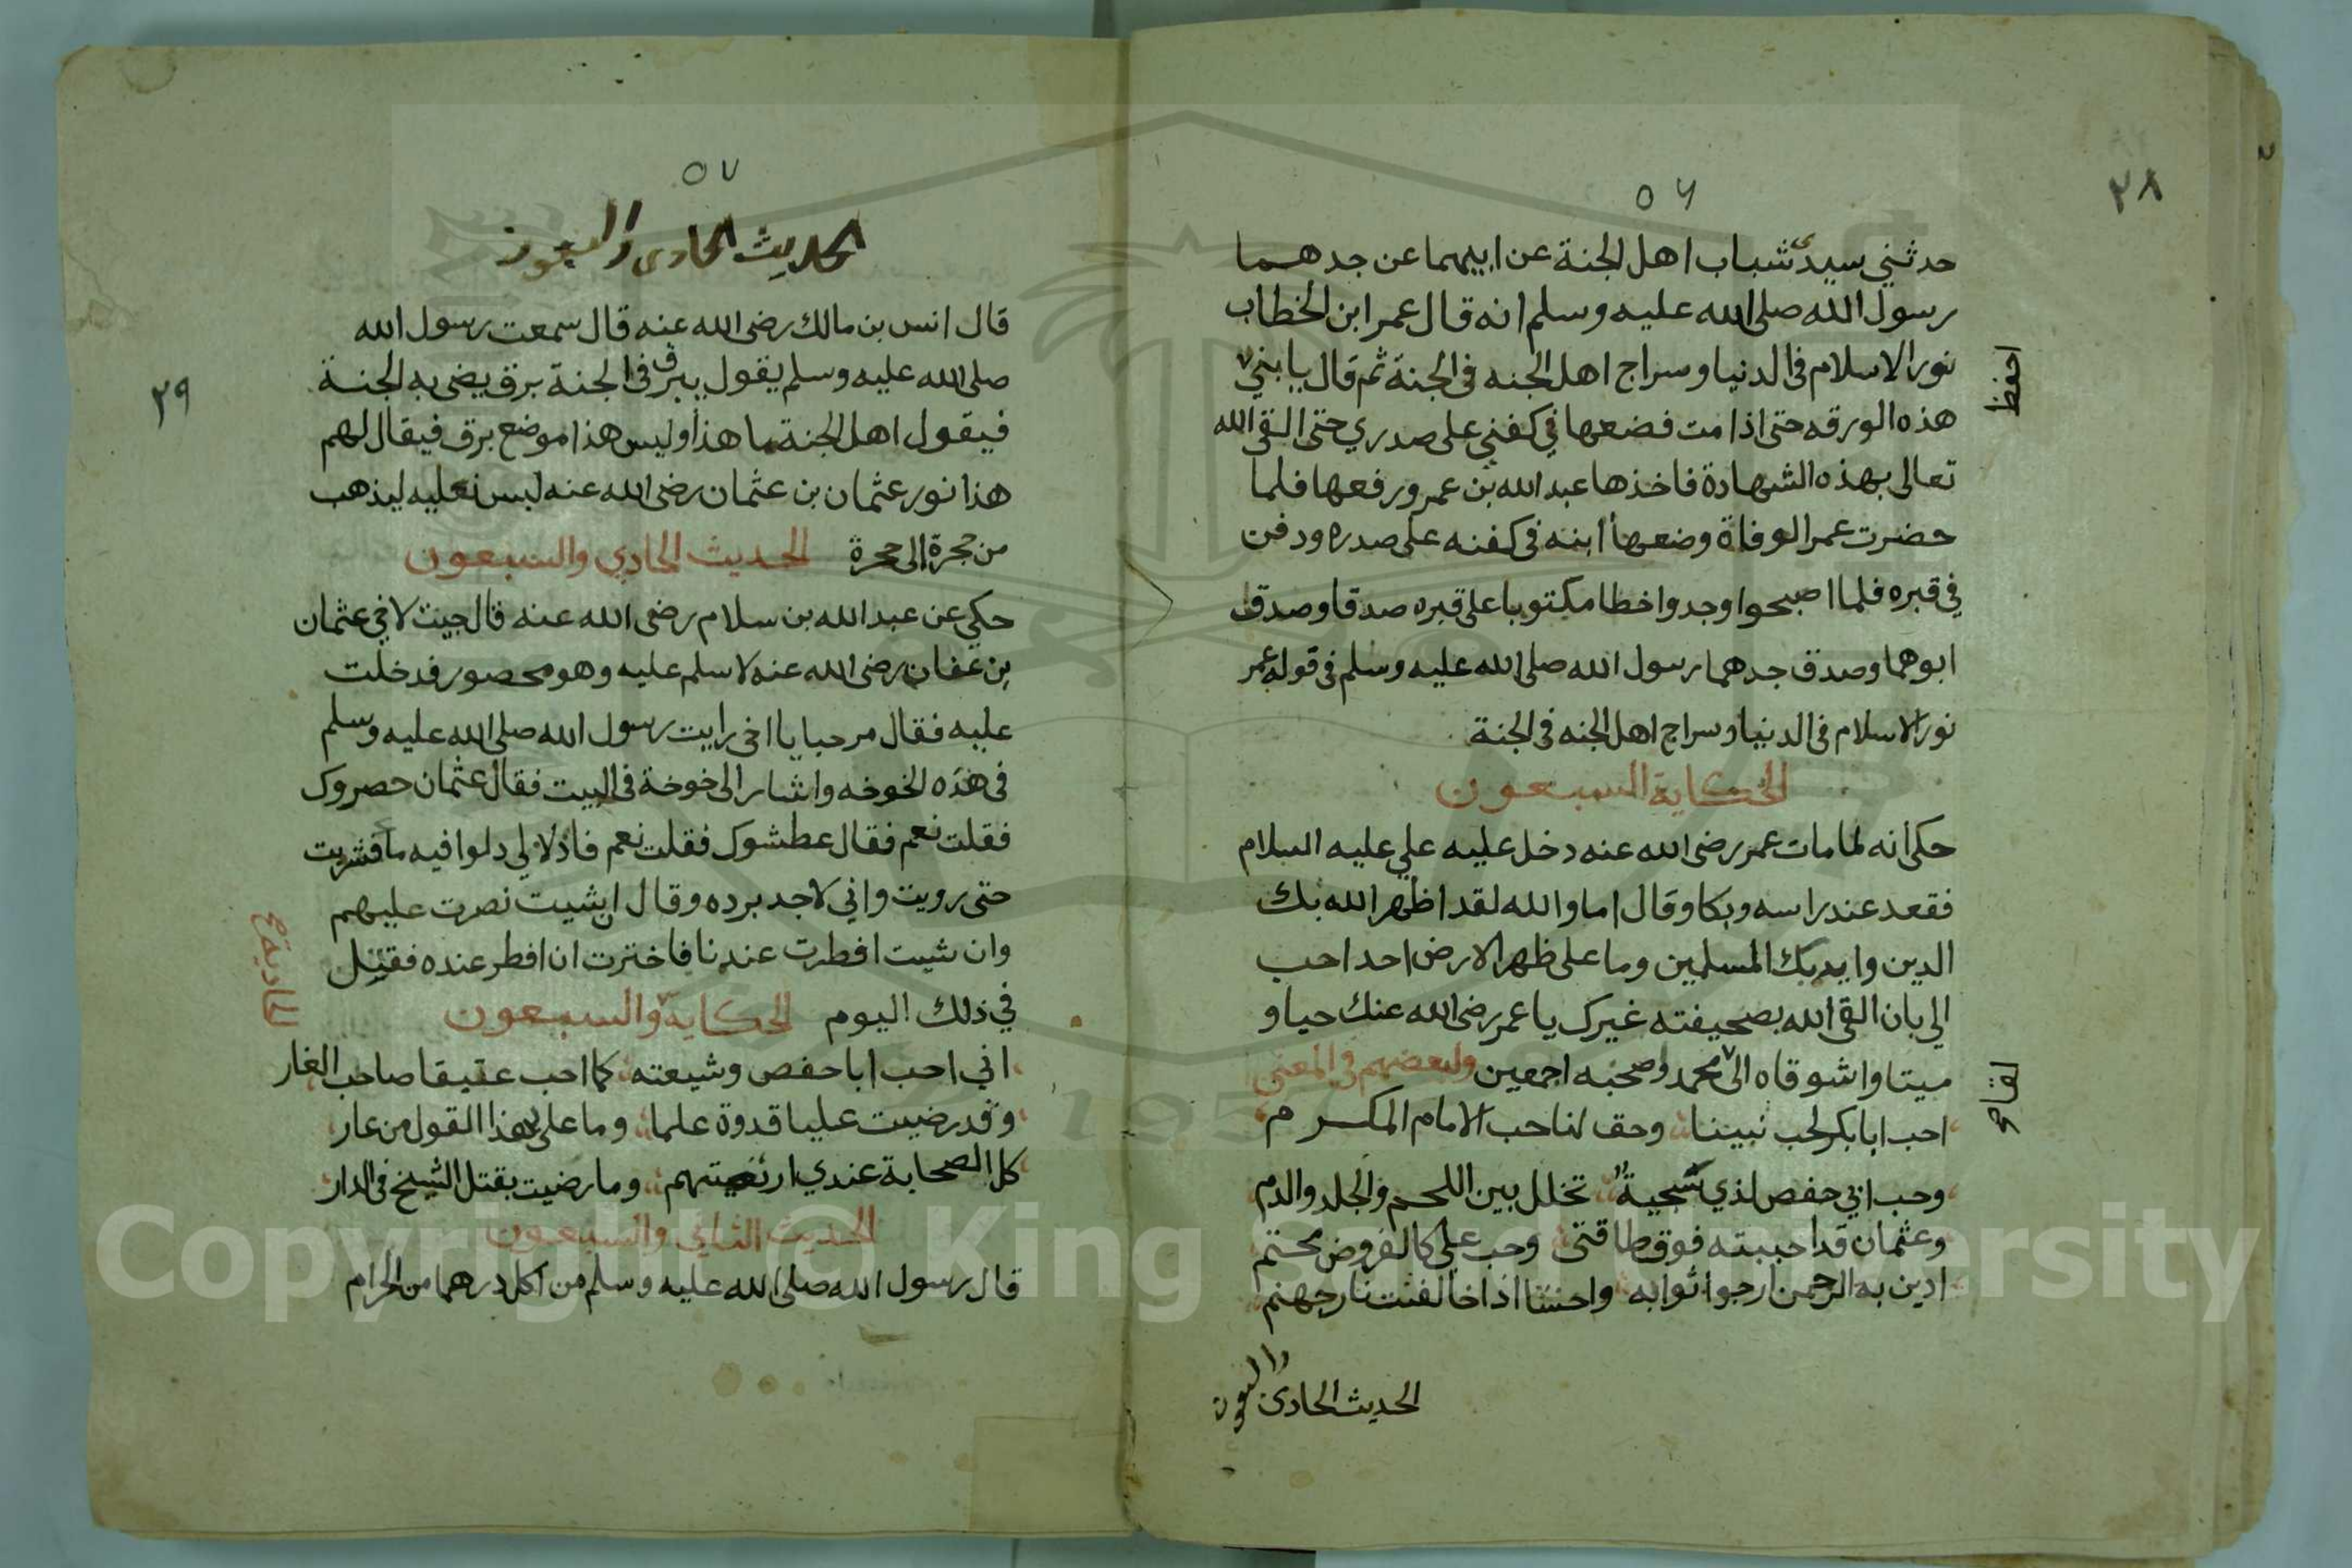 ٥٦
٢٨
حدثني سيدي شباب اهل الجنة عن ابيهما عن جدهما
رسول الله صلى الله عليه وسلم انه قال عمر ابن الخطاب
نور الاسلام في الدنيا وسراج اهل الجنه في الجنة ثم قال يا بني
احفظ
هذه الورقه حتى اذا مت فضعها في كفني على صدري حتى القى الله
تعالى بهذه الشهادة فاخذها عبد الله بن عمر ورفعها فلما
حضرت عمر الوفاة وضعها ابنه في كفنه على صدره ودفن
في قبره فلما اصبحوا وجدوا خطا مكتوبا على قبره صدقا وصدق
ابوهما وصدق جدهما رسول الله صلى الله عليه وسلم في قوله عمر
نور الاسلام في الدنيا وسراج اهل الجنه في الجنة
الحكاية السبعون
حكى انه لما مات عمر رضى الله عنه دخل عليه علي عليه السلام
فقعد عند راسه وبكا وقال اما والله لقد اظهر الله بك
الدين وايد بك المسلمين وما على ظهر الارض احد احب
الي بان القى الله بصحيفته غيرك يا عمر رضى الله عنك حيا و
ميتا واشوقاه الى محمد وصحبه اجمعين ولبعضهم في المعنى
احب ابا بكر لحب نبينا وحق لنا حب الامام المكرم
وحب ابي حفص لذي سجية تخلل بين اللحم والجلد والدم
وعثمان قد احببته فوق طاقتي وحب علي كالفروض محتم
ادين به الرحمن ارجوا ثوابه واخشا اذا خالفت نار جهنم
الحديث الحادى والسبعون
٥٧
٢٩
الحديث الحادى والسبعون
قال انس بن مالك رضى الله عنه قال سمعت رسول الله
صلى الله عليه وسلم يقول يبرق في الجنة برق يضى به الجنة
فيقول اهل الجنة ما هذا وليس هذا موضع برق فيقال لهم
هذا نور عثمان بن عثمان رضى الله عنه لبس نعليه ليذهب
من حجرة الى حجرة الحديث الحادي والسبعون
حكي عن عبد الله بن سلام رضى الله عنه قال جيت لاخي عثمان
بن عفان رضى الله عنه لاسلم عليه وهو محصور فدخلت
عليه فقال مرحبا يا اخى رايت رسول الله صلى الله عليه وسلم
في هذه الخوخه واشار الى خوخة في البيت فقال عثمان حصروك
فقلت نعم فقال عطشوك فقلت نعم فادلا لي دلوا فيه ما فشربت
حتى رويت واني لاجد برده وقال ان شيت نصرت عليهم
وان شيت افطرت عندنا فاخترت ان افطر عنده فقتل
في ذلك اليوم الحكاية والسبعون
اني احب ابا حفص وشيعته كما احب عتيقا صاحب الغار
وقد رضيت عليا قدوة علما وما على بهذا القول من عار
كل الصحابة عندي ارتضيتهم وما رضيت بقتل الشيخ في الدار
الحديث الثاني والسبعون
قال رسول الله صلى الله عليه وسلم من اكل درهما من الحرام
Copyright © King Saud University